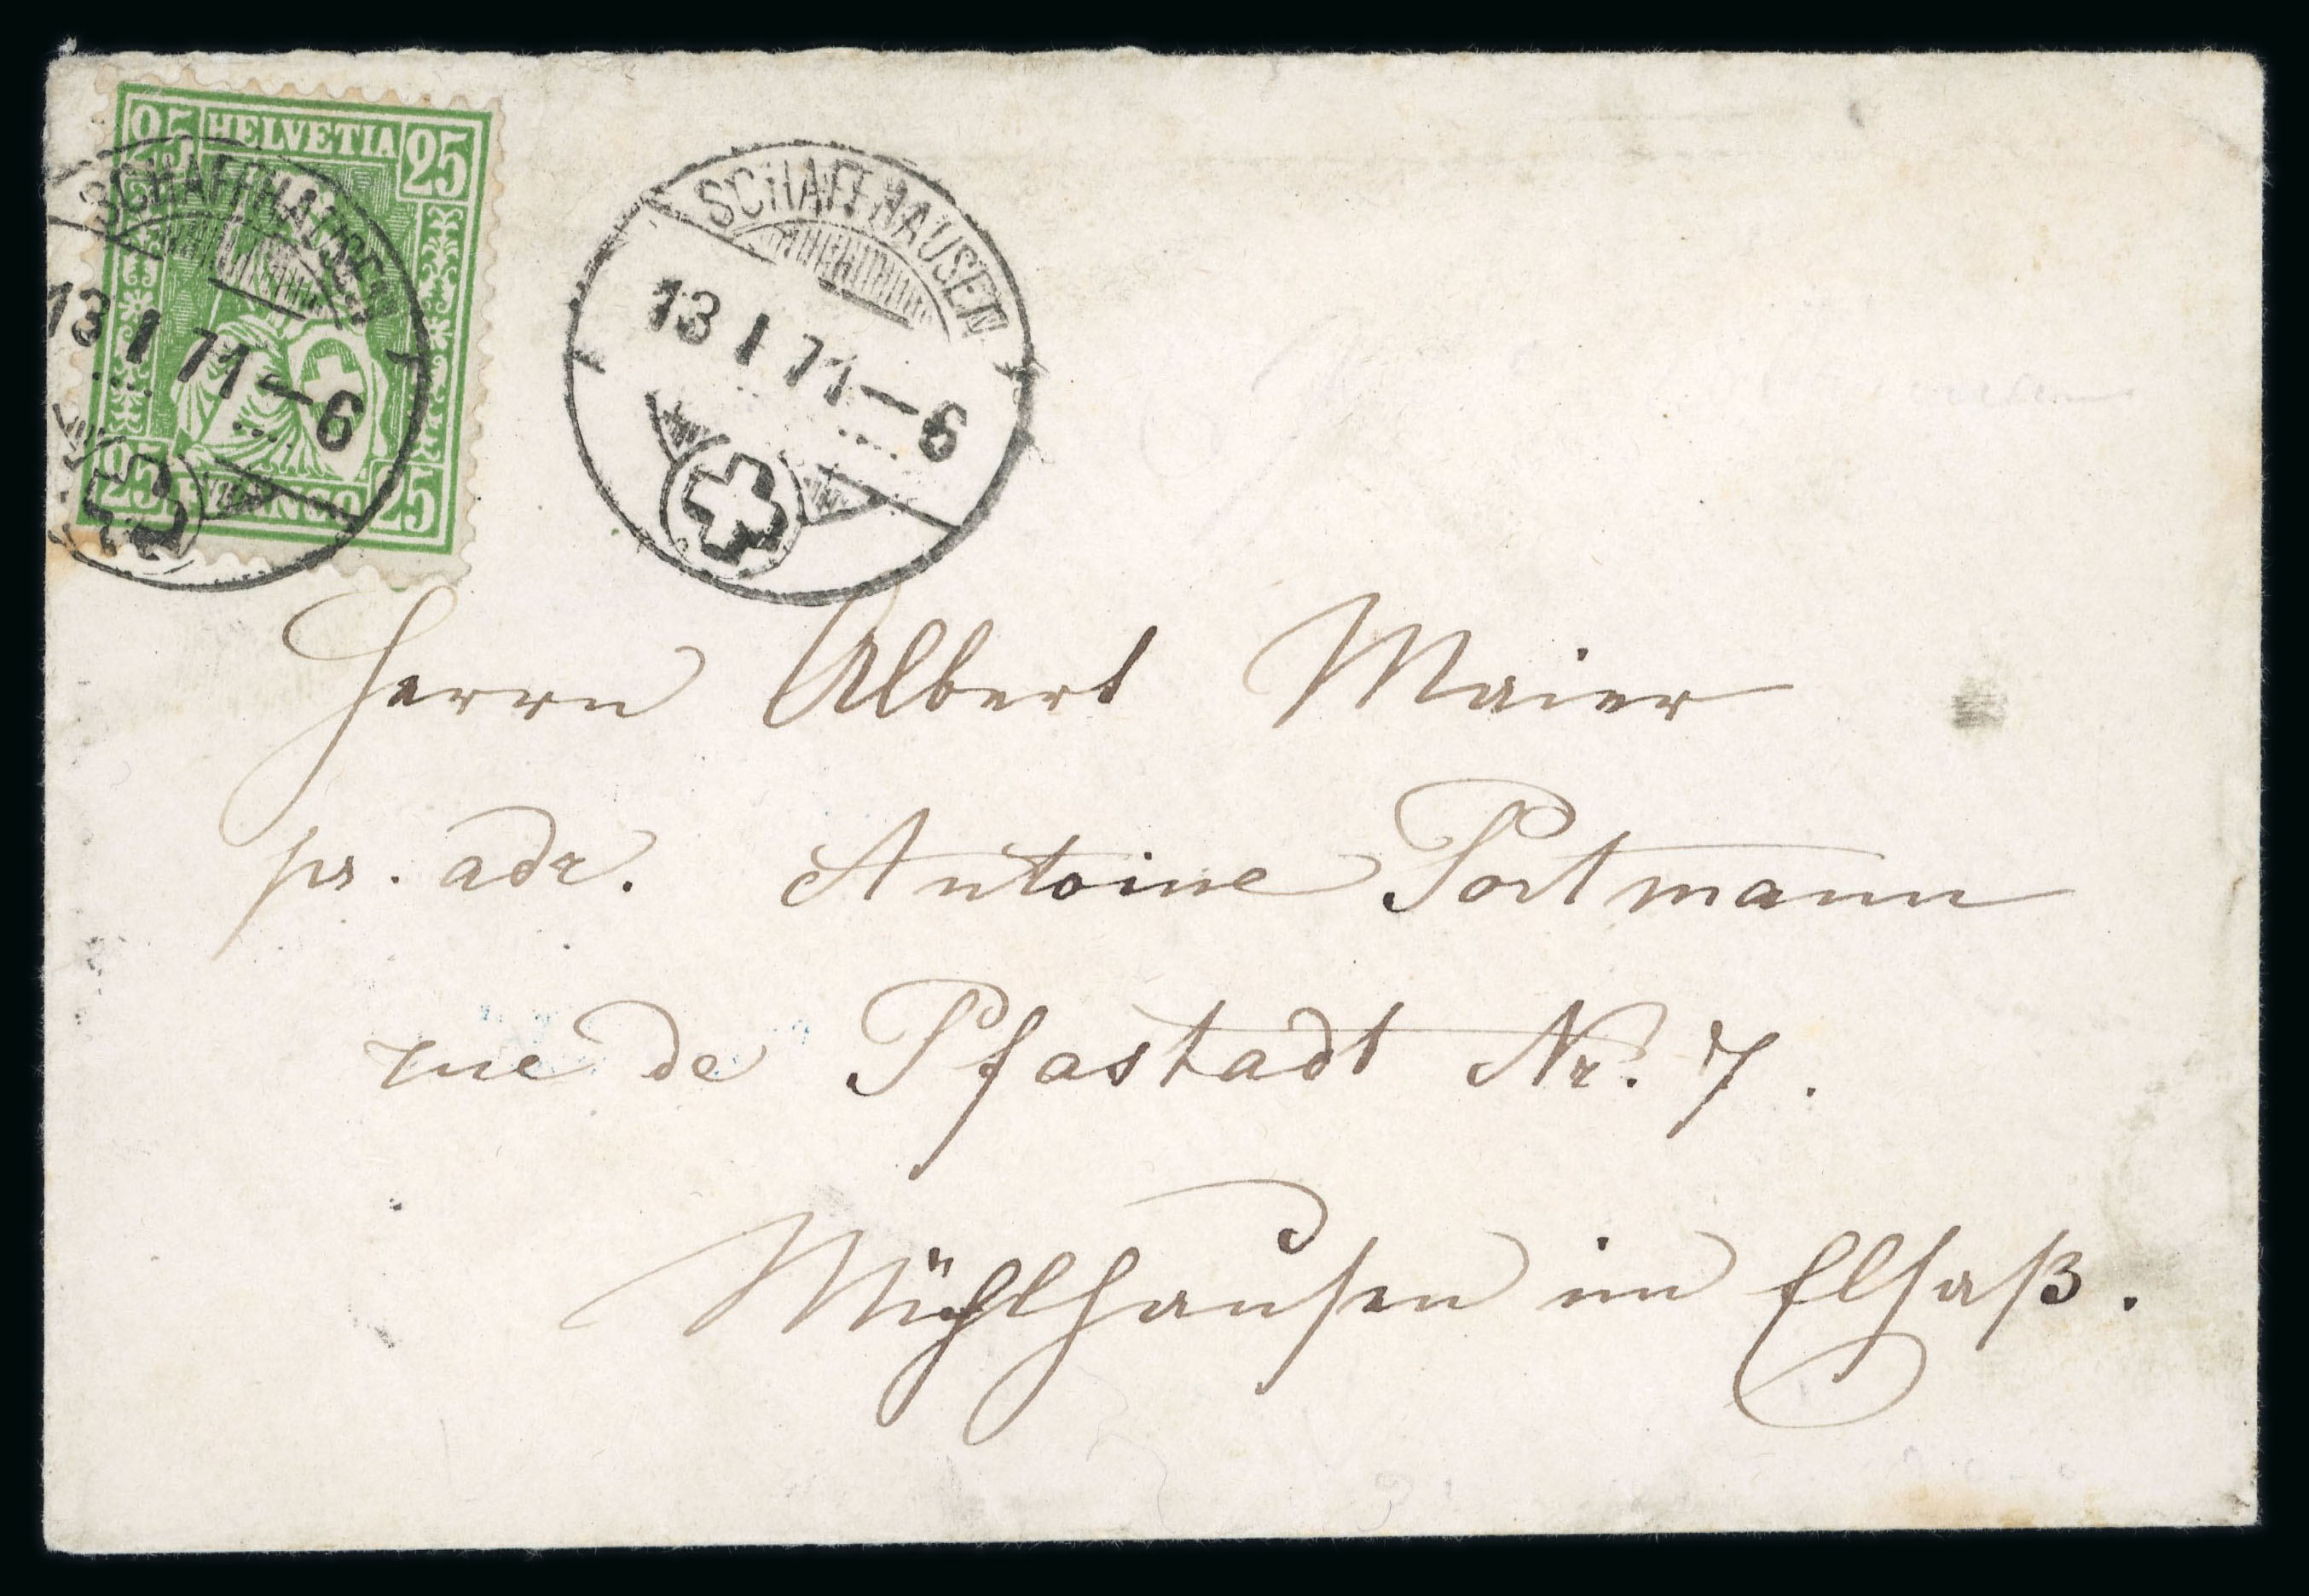 25 HELVETIA 25
25 FRANCO 25
SCHAFFHAUSEN
13 I 71–6
SCHAFFHAUSEN
13 I 71–6
Herrn Albert Maier
pr. adr. Antoine Portmann
rue de Pfastadt Nr. 7.
Mühlhausen im Elsaß.